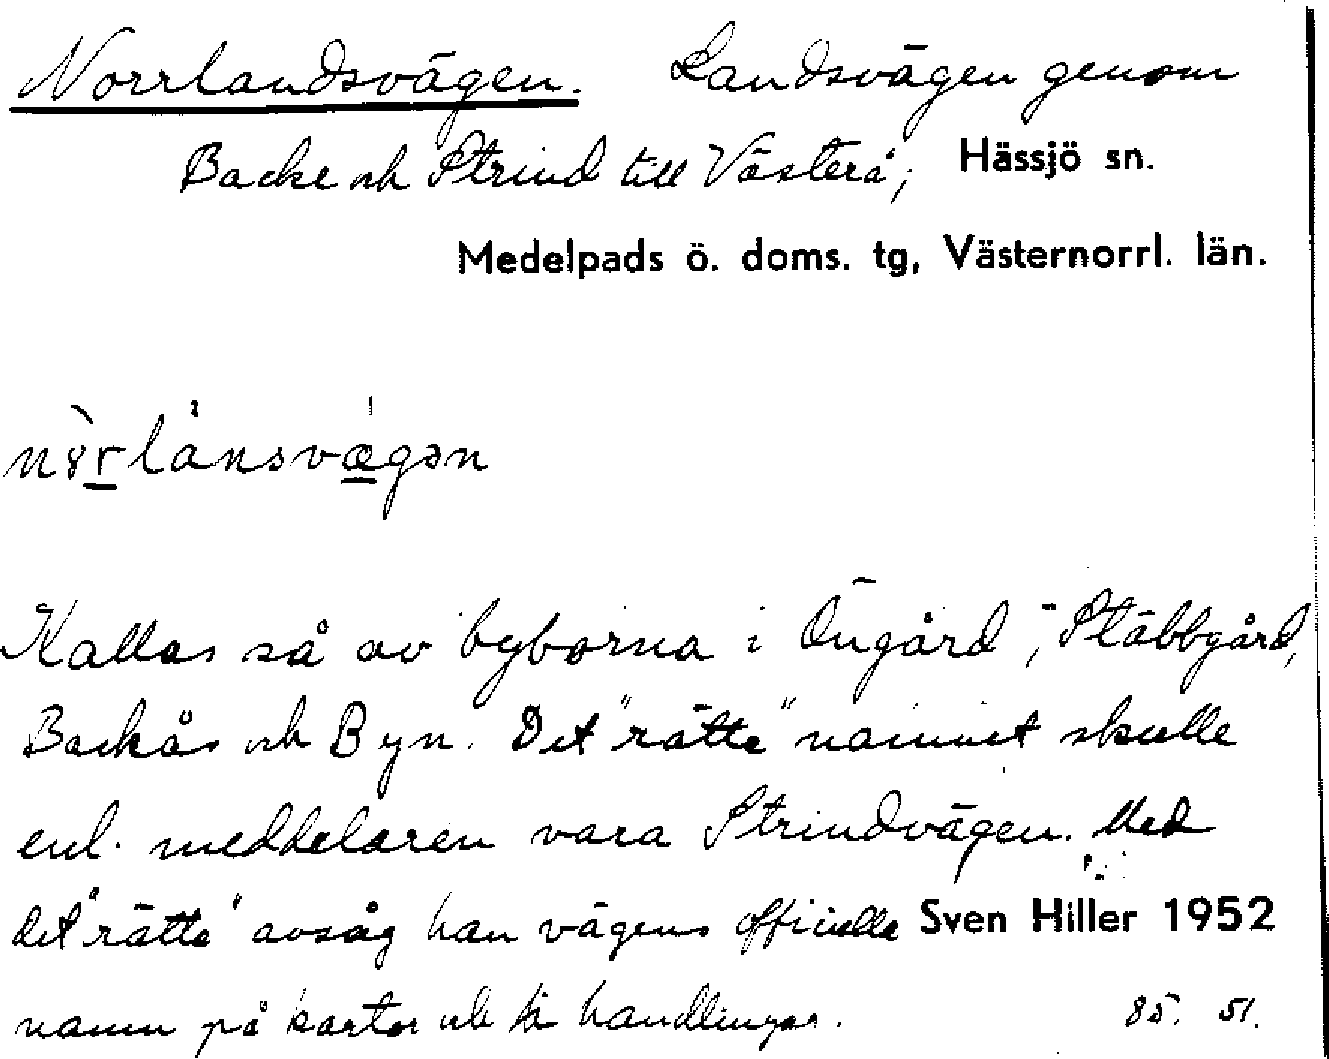 Norrlandsvägen. Landsvägen genom
Backe och Strind till Västerå, Hässjö sn.
Medelpads ö. doms. tg, Västernorrl. län.
Kallas så av byborna i Öngård, Stäbbgård,
Backås och Byn. Det "rätta" namnet skulle
enl. meddelaren vara Strindvägen. Med
det "rätta" avsåg han vägens officiella Sven Hiller 1952
namn på kartor och i handlingar. 85. 51.